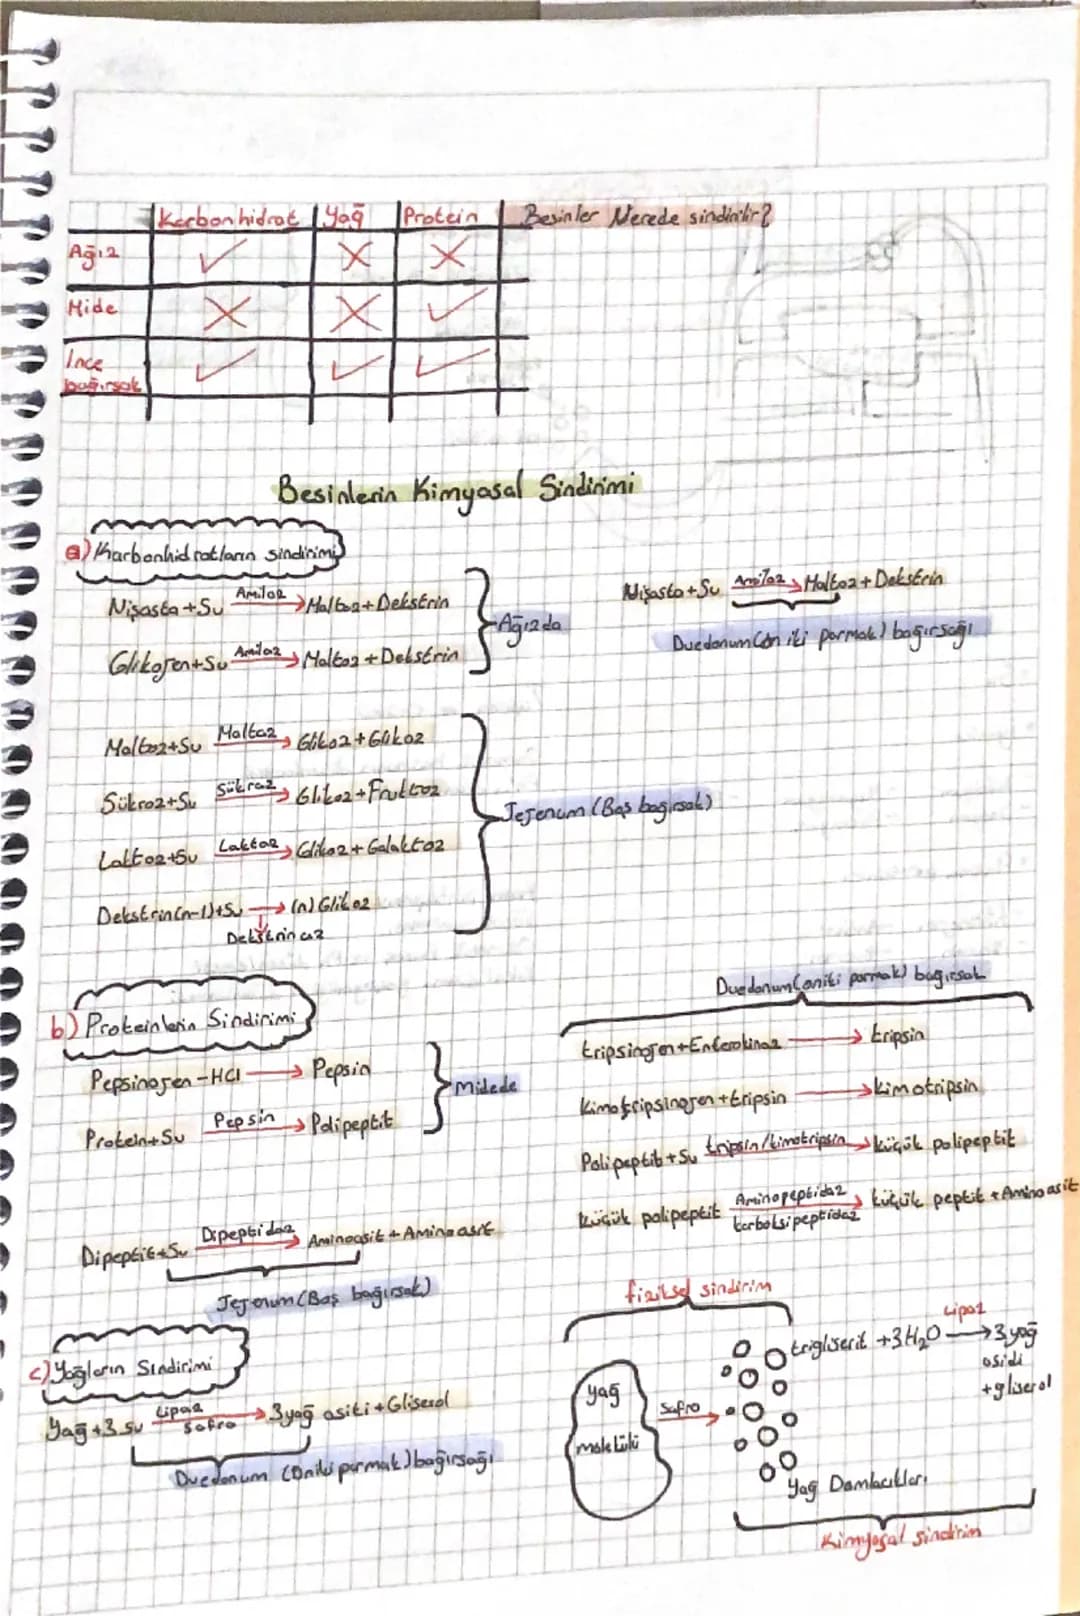 Karbonhidrat Yağ Protein Besinler Nerede sindirilir?
Ağız ✓ X X
Mide X X ✓
İnce bağırsak ✓ ✓ ✓
Besinlerin Kimyasal Sindirimi
a) Karbonhidratların sindirimi
Nişasta+Su Amilaz → Maltoz+Dekstrin
Glikojen+Su Amilaz → Maltoz+Dekstrin
Ağızda
Nişasta+Su Amilaz → Maltoz+Dekstrin
Duedonum(on iki parmak) bağırsağı
Maltoz+Su Maltaz → Glikoz+Glikoz
Sükroz+Su Sükraz → Glikoz+Fruktoz
Laktoz+Su Laktaz → Glikoz+Galaktoz
Dekstrin(n-1)+Su → (n) Glikoz
Dekstrinaz
Jejenum (Baş bağırsak)
b) Proteinlerin Sindirimi
Pepsinojen-HCl → Pepsin
Protein+Su Pepsin → Polipeptit
Midede
Dipeptit+Su Dipeptidaz → Aminoasit+Amino asit
Jejenum (Baş bağırsak)
Duedonum(oniki parmak) bağırsak
tripsinojen+Enterokinaz → tripsin
kimotripsinojen+tripsin → kimotripsin
Polipeptit+Su tripsin/kimotripsin → küçük polipeptit
küçük polipeptit Aminopeptidaz karboksipeptidaz → küçük peptit + Amino asit
c) Yağların Sindirimi
Yağ+3 su Lipaz Safra → 3 yağ asiti+Gliserol
Duedonum (Oniki parmak) bağırsağı
fiziksel sindirim
yağ
molekülü
Safra →
trigliserit +3H₂O Lipaz → 3 yağ
asidi
+gliserol
Yağ Damlacıkları
Kimyasal sindirim